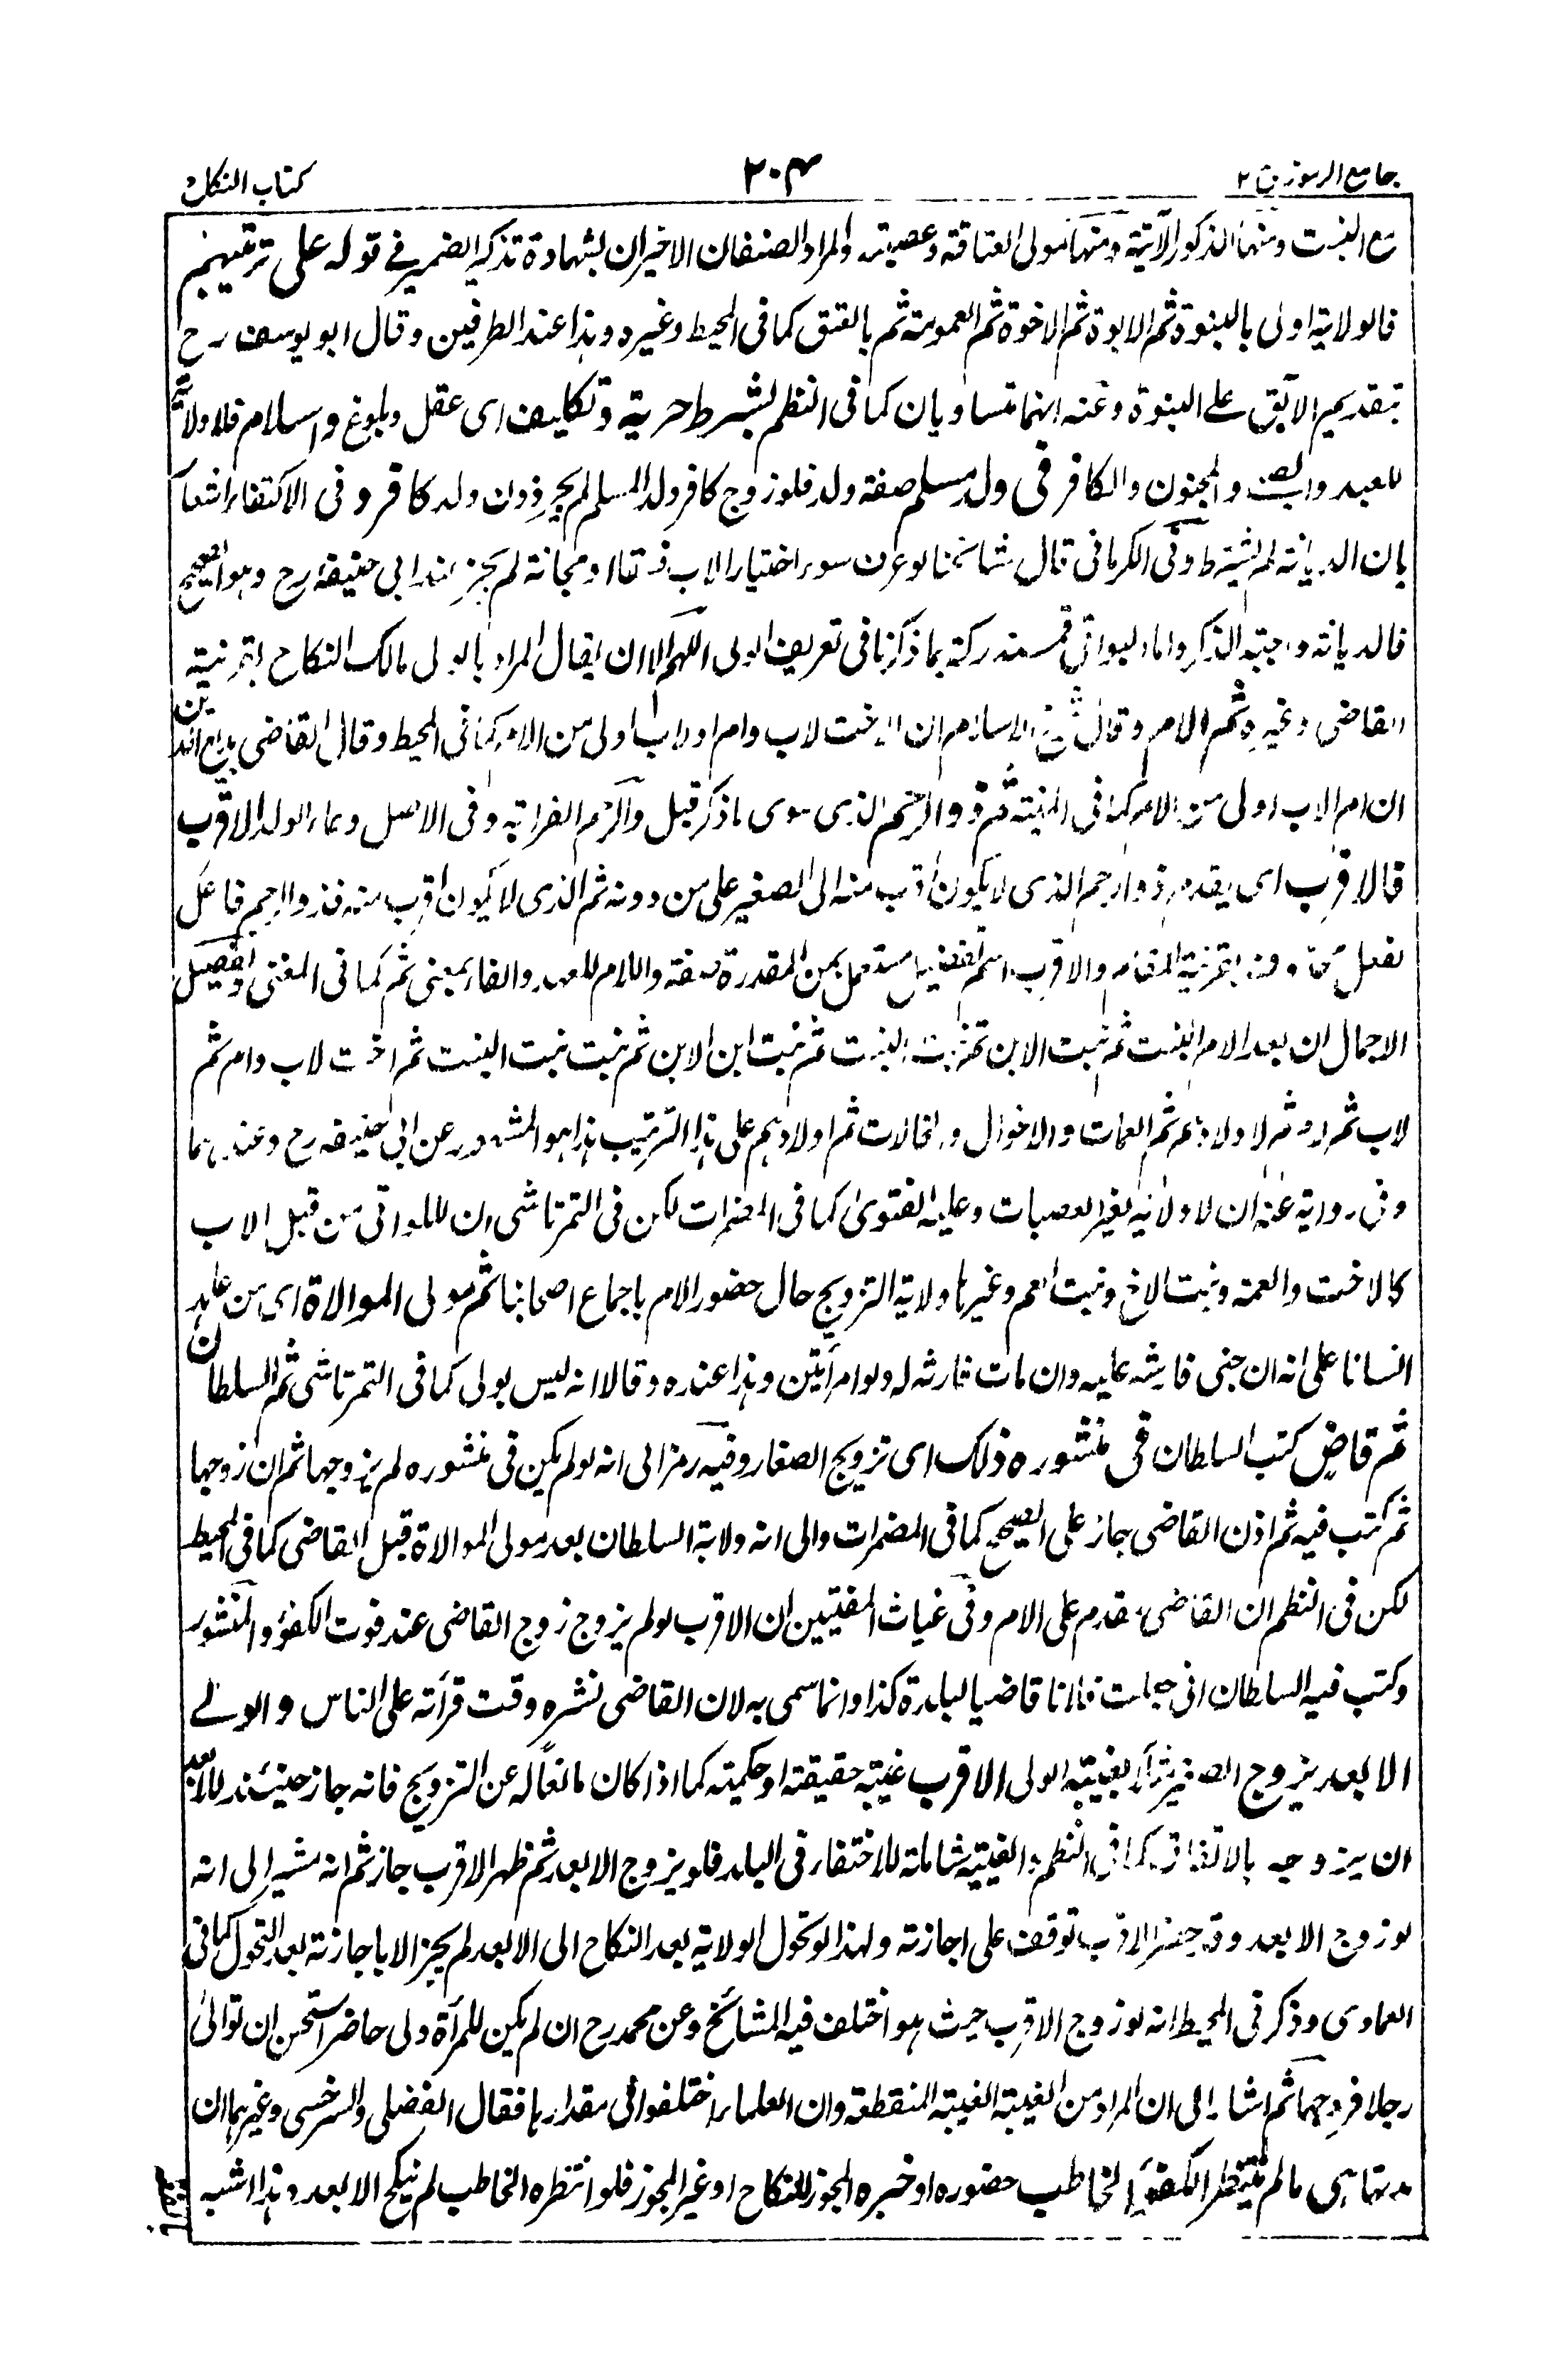 جامع الرموز ج ٢
٢٠٤
كتاب النكاح
مع البنت ومنها الذكور الآتية ومنها مولى العتاقة وعصبته والمراد الصنفان الاخيران بشهادة تذكير الضمير في قوله على ترتيبهم
فالولاية اولى بالبنوة ثم الابوة ثم الاخوة ثم العمومة ثم بالعتق كما في المحيط وغيره وهذا عند الطرفين وقال ابو يوسف رح
بتقديم الاب على البنوة وعنه انهما متساويان كما في النظم بشرط حرية وتكليف اى عقل وبلوغ واسلام فلا ولاية
للعبد والصبي والمجنون والكافر في ولد مسلم صفة ولد فلو زوج كافر ولد المسلم لم يجز دون ولد كافر وفى الاكتفاء اشعار
بان الديانة لم يشترط وفى الكرمانى قال مشائخنا لو عرف سوء اختيار الاب فسقا او مجانة لم يجز عند ابى حنيفة رح وهو الصحيح
فالديانة واجبة الذكر واما البواقى فمستدركة بما ذكرنا فى تعريف الولى اللهم الا ان يقال المراد بالولى مالك النكاح بقرينة
القاضى وغيره ثم الام وقال شيخ الاسلام ان الاخت لاب وام او لاب اولى من الام كما فى المحيط وقال القاضى بديع الدين
ان ام الاب اولى من الام كما فى المنية ثم ذو الرحم الذى سوى ما ذكر قبل والرحم القرابة وفى الاصل وعاء الولد الاقرب
فالاقرب اى يقدم ذو الرحم الذى لا يكون اقرب منه الى الصغير على من دونه ثم الذى لا يكون اقرب منه فذو الرحم فاعل
لفعل محذوف بقرينة المقام والاقرب اسم تفضيل مستعمل بمن المقدرة صفة واللام للعهد والفاء بمعنى ثم كما فى المغنى وتفصيل
الاجمال ان بعد الام البنت ثم بنت الابن ثم بنت البنت ثم بنت ابن الابن ثم بنت بنت البنت ثم اخت لاب وام ثم
لاب ثم لام ثم لاولادهم ثم العمات والاخوال والخالات ثم اولادهم على هذا الترتيب هذا هو المشهور عن ابى حنيفة رح وعندهما
وفى رواية عنه ان لا ولاية لغير العصبات وعليه الفتوى كما فى المضمرات لكن فى التمرتاشى ان للواتى من قبل الاب
كالاخت والعمة وبنت الاخ وبنت العم وغيرها ولاية التزويج حال حضور الام باجماع اصحابنا ثم مولى الموالاة اى من عاهد
انسانا على انه ان جنى فارشه عليه وان مات فارثه له ولو امرأتين وهذا عنده وقالا انه ليس بولى كما فى التمرتاشى ثم السلطان
ثم قاض كتب السلطان فى منشوره ذلك اى تزويج الصغار وفيه رمز الى انه لو لم يكن فى منشوره لم يزوجها ثم ان زوجها
ثم كتب فيه ثم اذن القاضى جاز على الصحيح كما فى المضمرات والى انه ولاية السلطان بعد مولى الموالاة قبل القاضى كما فى المحيط
لكن فى النظم ان القاضى مقدم على الام وفى غياث المفتيين ان الاقرب لو لم يزوج زوج القاضى عند فوت الكفؤ والمنشور
وكتب فيه السلطان انى جعلت فلانا قاضيا لبلدة كذا وانما سمى به لان القاضى نشره وقت قرأته على الناس والولي
الابعد يزوج الصغير بغيبة الولى الاقرب غيبة حقيقة او حكمية كما اذا كان مانعا له عن التزويج فانه جاز حينئذ للابعد
ان يزوجه بالاتفاق كما فى النظم والغيبة شاملة للاختفاء فى البلد فلو يزوج الابعد ثم ظهر الاقرب جاز ثم انه مشير الى انه
لو زوج الابعد وقد حضر الاقرب توقف على اجازته ولهذا لو تحول الولاية بعد النكاح الى الابعد لم يجز الا باجازته بعد التحول كما فى
العمادى وذكر فى المحيط انه لو زوج الاقرب حيث هو اختلف فيه المشائخ وعن محمد رح ان لم يكن للمرأة ولى حاضر استحسن ان توالى
رجلا فزوجها ثم اشار الى ان المراد من الغيبة الغيبة المنقطعة وان العلماء اختلفوا فى مقدارها فقال الفضلى والسرخسى وغيرهما ان
مدتها هى ما لم ينتظر الكفؤ الخاطب حضوره او خبره المجوز للنكاح او غير المجوز فلو انتظره الخاطب لم ينكح الابعد وهذا اشبه